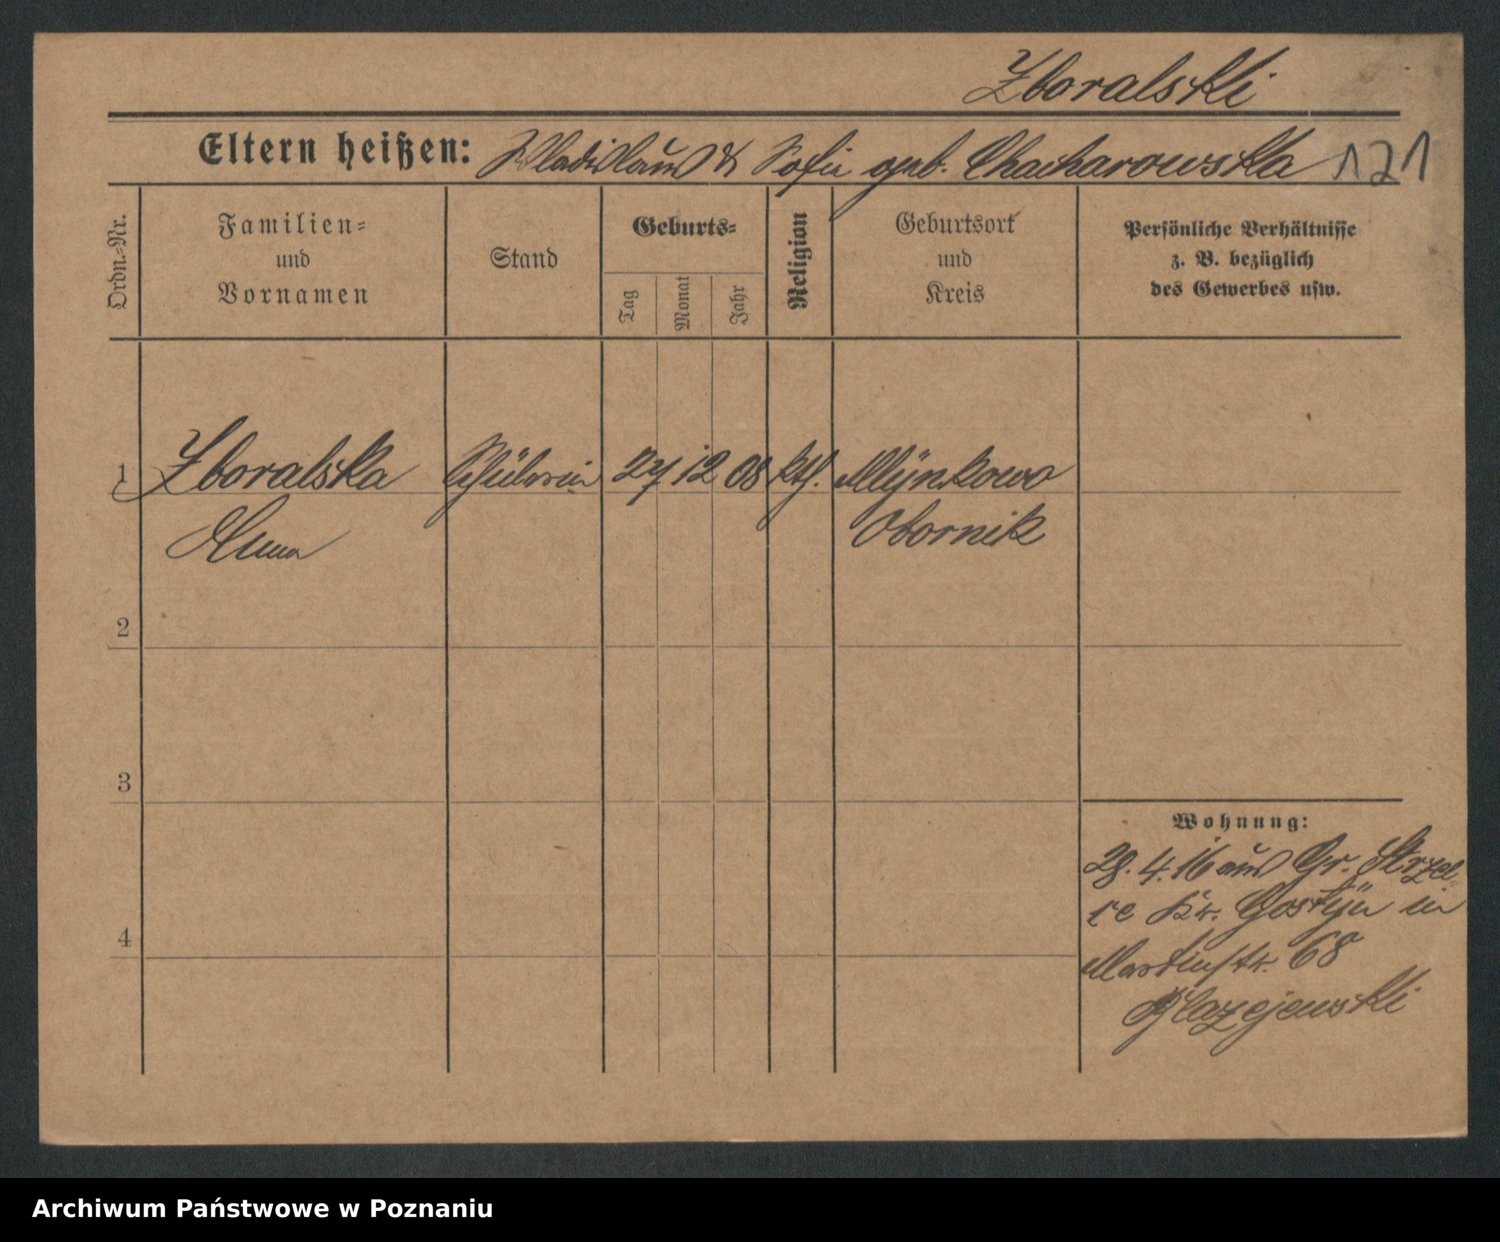 Zboralski
Eltern heißen: Wladislaus & Sofie geb. Chacharowska 171
Ordn.-Nr.
Familien-
und
Vornamen
Stand
Geburts-
Tag
Monat
Jahr
Religion
Geburtsort
und
Kreis
Persönliche Verhältnisse
z. B. bezüglich
des Gewerbes usw.
1 Zboralska Schülerin 27 12 08 kth. Mlynkowo
Anna Obornik
2
3
4
Wohnung:
28. 4. 16 aus Gr. Strzel-
ce Kr. Gostyn in
Martinstr. 68
Blazejewski
Archiwum Państwowe w Poznaniu